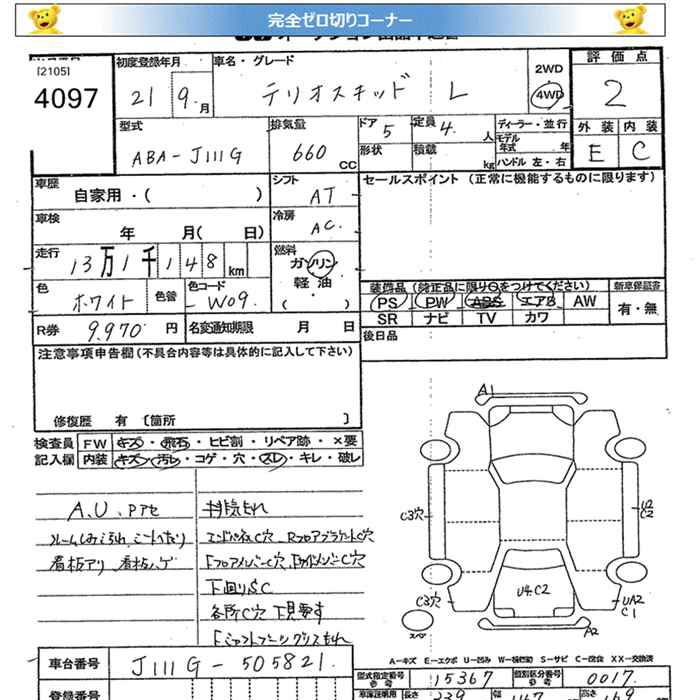 完全ゼロ切りコーナー
[2105]
4097
初度登録年月
21 9 月
車名・グレード
テリオスキッド L
2WD
4WD
評価点
2
外装 内装
E C
型式
ABA-J111G
排気量
660 CC
ドア 5
形状
定員 4. 人
積載 kg
ディーラー・並行
モデル年式 年
ハンドル 左・右
車歴
自家用・( )
シフト
AT
セールスポイント (正常に機能するものに限ります)
車検
年 月( 日)
冷房
AC.
走行
13万1千148 km
燃料
ガソリン
軽油
( ・ )
色
ホワイト
色替
色コード
W09.
装備品(純正品に限り○をつけてください)
新車保証書
PS PW ABS エアB AW
有・無
SR ナビ TV カワ
R券 9,970 円
名変通知期限 月 日
後日品
注意事項申告欄(不具合内容等は具体的に記入して下さい)
修復歴 有 〔箇所 〕
検査員記入欄
FW キズ・飛石・ヒビ割・リペア跡・×要
内装 キズ・汚レ・コゲ・穴・スレ・キレ・破レ
A.U、Pアセ
排気もれ
看板アリ、看板ハゲ
下回りSC
各所C穴 下見要す
A1
C3穴
U2
C2
U4C2
C3穴
UA2
C1
スペア
A2
A-キズ E-エクボ U-凹み W-補修跡 S-サビ C-腐食 XX-交換済
車台番号
J111G-505821.
型式指定番号
15367
類別区分番号
0017.
登録番号
長さ
339
幅
147
高さ
169